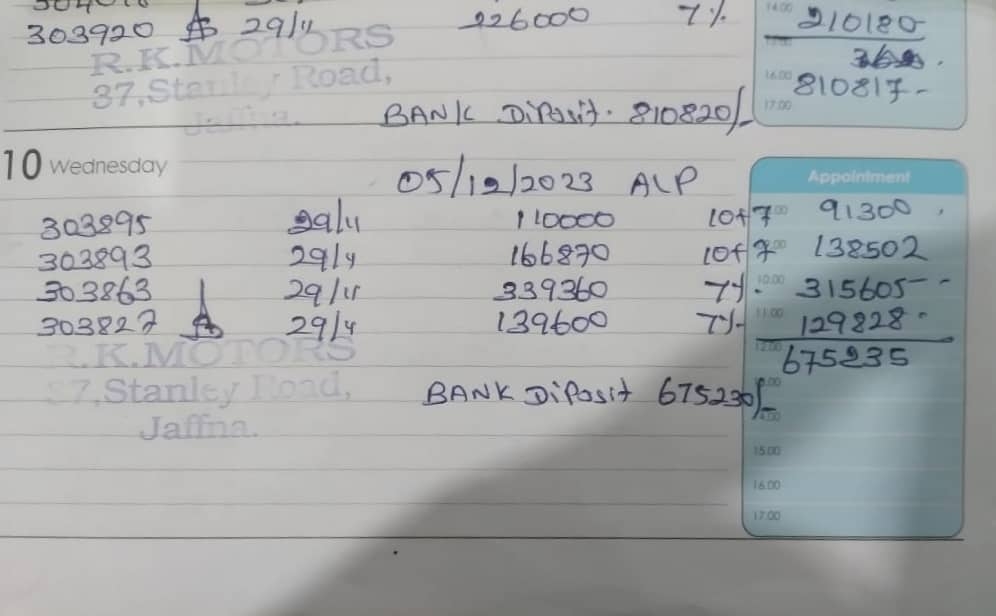 303920 29/11 226000 7% 14.00 210180
R.K.MOTORS
37,Stanley Road, 16.00 810817-
Jaffna. BANK Diposit. 810820/- 17.00
10 Wednesday 05/12/2023 ALP Appointment
303895 29/11 110000 10+7 91300
303893 29/11 166870 10+7 138502
303863 29/11 339360 7%. 10.00 315605-
303827 29/11 139600 7% 11.00 129828
R.K.MOTORS 12.00 675235
37,Stanley Road, BANK Diposit 675230/-
Jaffna.
15.00
16.00
17.00